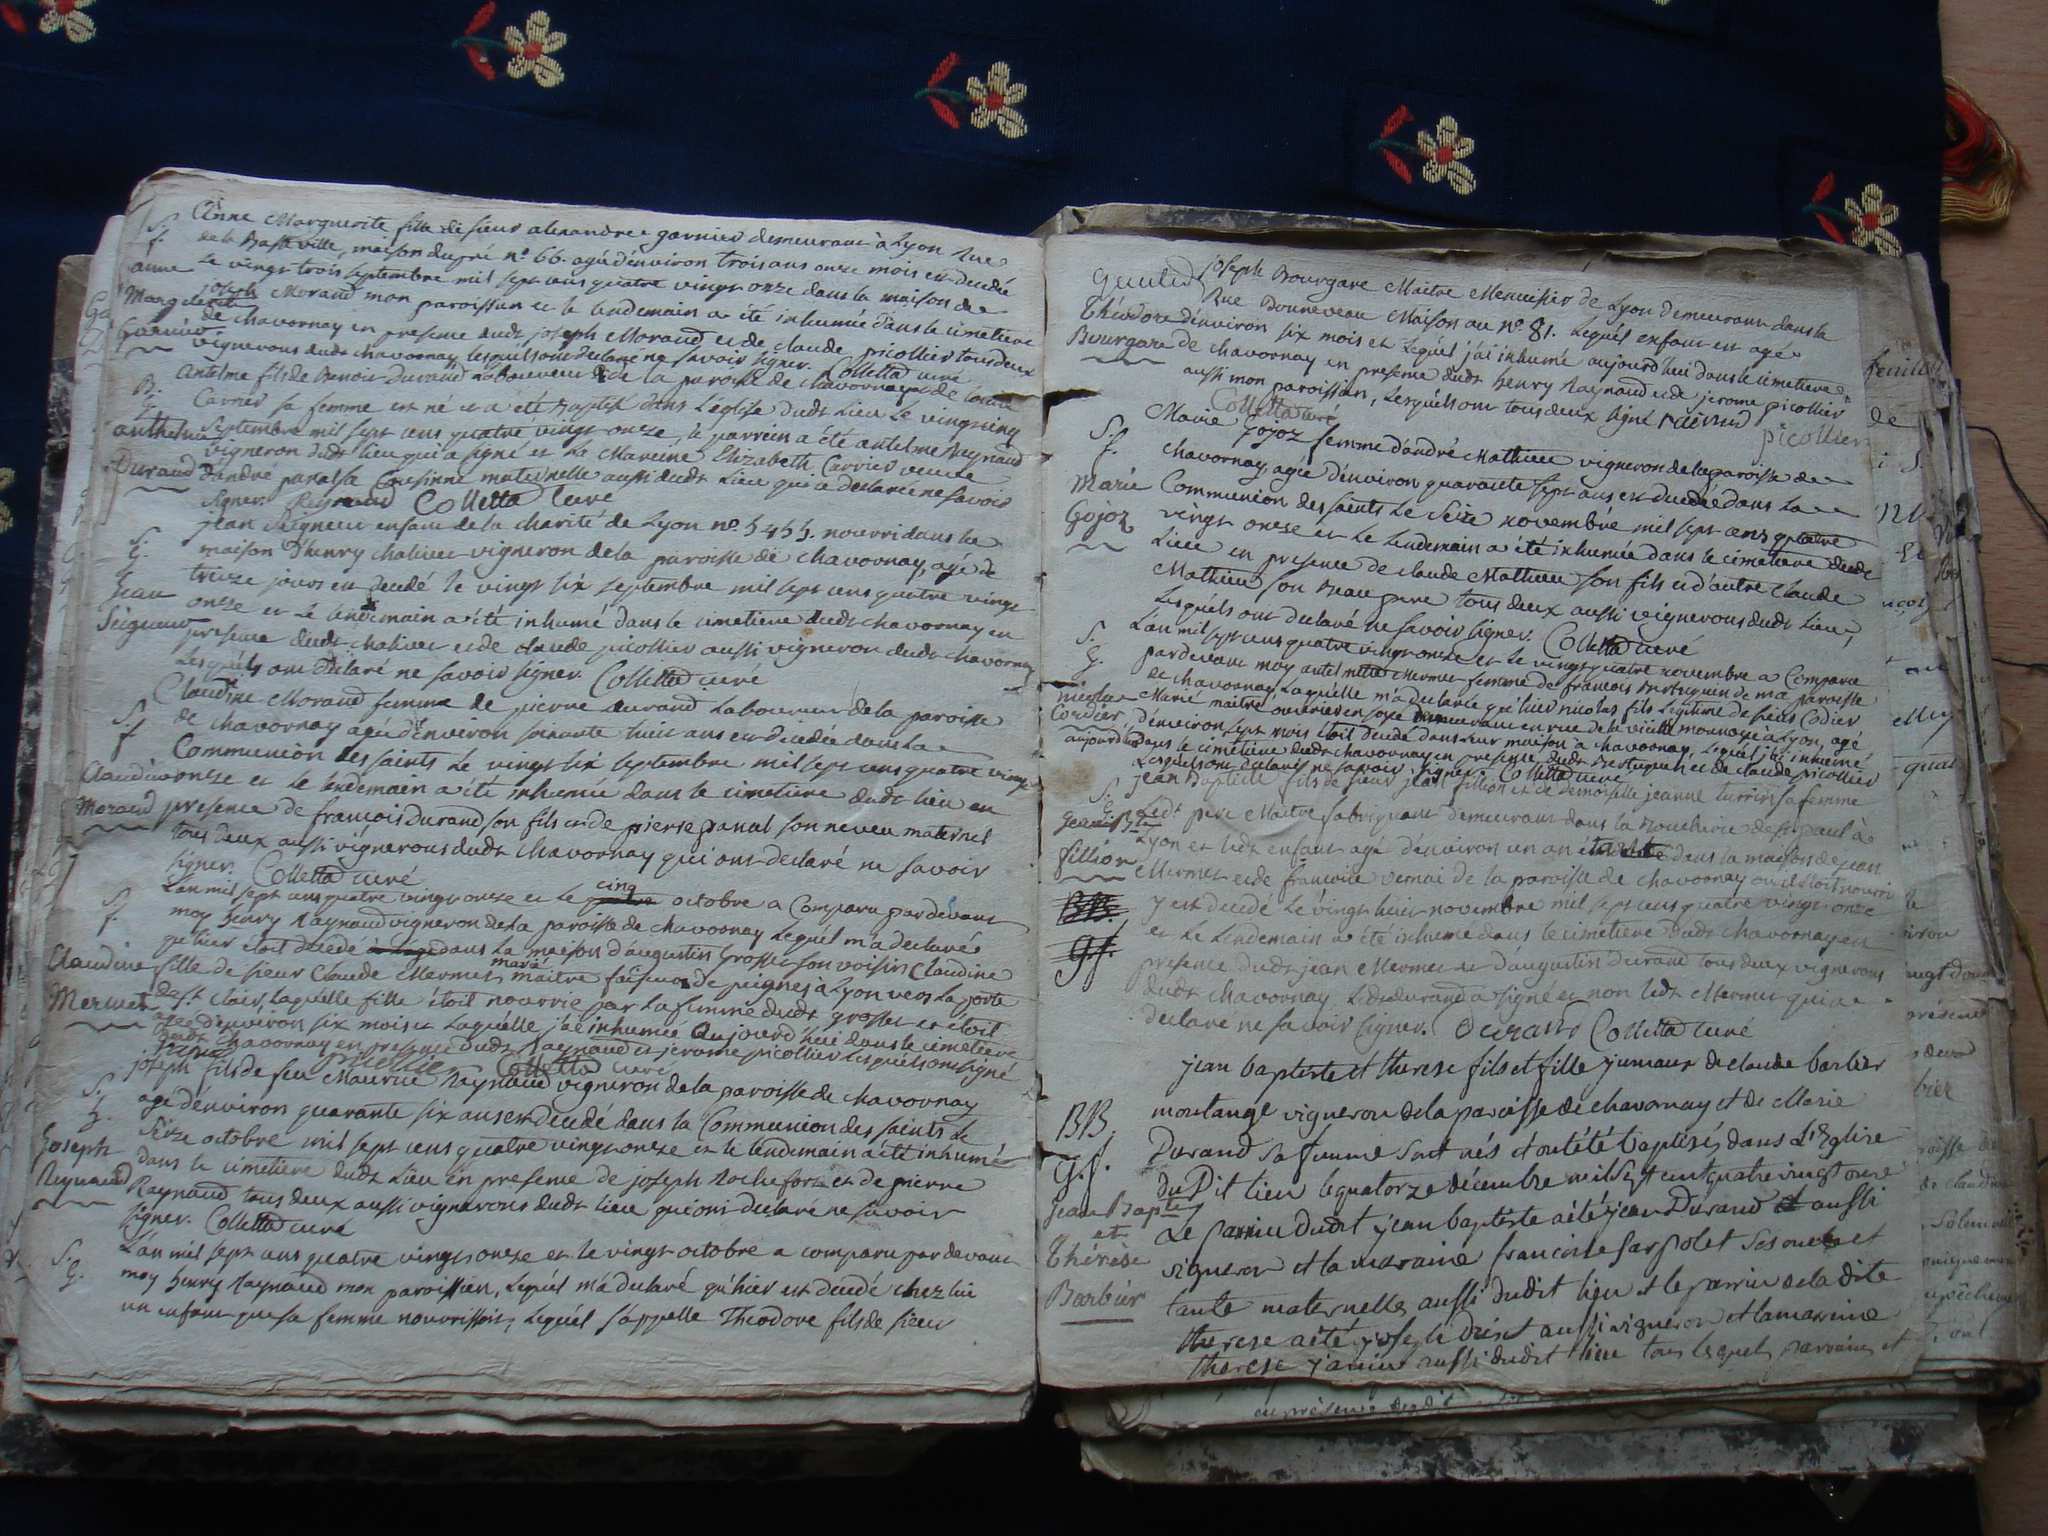 S. f.
anne
Marguerite
Garnier
Anne Marguerite fille de sieur alexandre garnier demeurant à Lyon Rue
de la Basseville, maison dupré n° 66. agée d'environ trois ans onze mois est decedée
Le vingt trois septembre mil sept cens quatre vingt onze dans la maison de
joseph Morand mon paroissien et le lendemain a été inhumée dans le cimetiere
de chavornay en presence dudt joseph Morand et de claude picollier tous deux
vignerons dudt chavornay lesquels ont declaré ne savoir signer. Colletta curé
B. g.
anthelme
Durand
Antelme fils de Benoit Durand Laboureur de la paroisse de chavornay et de
Carrier sa femme est né et a été Baptisé dans l'église dudt Lieu Le vingt cinq
Septembre mil sept cens quatre vingt onze, le parrein a été antelme Reynaud
vigneron dudt lieu qui a signé et La Mareine Elizabeth Carrier veuve
d'andré panal sa Cousinne maternelle aussi dudt Lieu qui a declaré ne savoir
signer. Reynaud Colletta Curé
S. g.
jean
Seigneur
jean Seigneur enfant de la charité de Lyon n° 5455. nourri dans la
maison d'henry chaliver vigneron de la paroisse de chavornay, agé de
treize jours est decedé le vingt six septembre mil sept cens quatre vingt
onze et le lendemain a été inhumé dans le cimetiere dudt chavornay en
presence dudt chaliver et de claude picollier aussi vigneron dudt chavornay
Lesquels ont declaré ne savoir signer. Colletta curé
S. f.
Claudine
Morand
Claudine Morand femme de pierre durand Laboureur de la paroisse
de chavornay agée d'environ soixante huit ans est decedée dans La
Communion des saints Le vingt six septembre mil sept cens quatre vingt
onze et le lendemain a été inhumée dans le cimetiere dudt lieu en
presence de françois durand son fils et de pierre panal son neveu maternel
tous deux aussi vignerons dudt chavornay qui ont declaré ne savoir
signer. Colletta curé
S. f.
Claudine
Mermet
L'an mil sept cens quatre vingt onze et le cinq octobre a Comparu par devant
moy henry Raynaud vigneron de la paroisse de chavornay Lequel m'a declaré
qu'hier etoit decedé dans La maison d'augustin Grosset son voisin Claudine
fille de sieur Claude Mermet marié maitre faiseur de peignes a Lyon vers La porte
de st Clair, Laquelle fille étoit nourrie par La femme dudt grosset et étoit
agée d'environ six mois et Laquelle j'ai inhumée aujourd'hui dans le cimetiere
dudt chavornay en presence dudt Raynaud et jerome picollier Lesquels ont signé
picollier Colletta curé
S. g.
Joseph
Reynaud
joseph fils de feu Maurice Raynaud vigneron de la paroisse de chavornay
agé d'environ quarante six ans est decedé dans la Communion des saints Le
Seize octobre mil sept cens quatre vingt onze et le lendemain a été inhumé
dans le cimetiere dudt Lieu en presence de joseph Rochefort et de pierre
Raynaud tous deux aussi vignerons dudt lieu qui ont declaré ne savoir
signer. Colletta curé
S. g.
L'an mil sept cens quatre vingt onze et le vingt octobre a comparu par devant
moy henry Raynaud mon paroissien, Lequel m'a declaré qu'hier est decedé chez lui
un enfant que sa femme nourrissoit, Lequel s'appelle Theodore fils de sieur
Théodore
Bourgare
joseph Bourgare Maitre Menuisier de Lyon demeurant dans la
Rue Bonneveau Maison au n° 81. Lequel enfant est agé
d'environ six mois et Lequel j'ai inhumé aujourd'hui dans le cimetiere
de chavornay en presence dudt henry Raynaud et de jerome picollier
aussi mon paroissien, Lesquels ont tous deux signé
Colletta curé picollier
S. f.
Marie
Gojoz
Marie Gojoz femme d'andré Mathieu vigneron de la paroisse de
chavornay, agée d'environ quarante sept ans est decedée dans La
Communion des saints Le Seize novembre mil sept cens quatre
vingt onze et Le lendemain a été inhumée dans le cimetiere dudt
Lieu en presence de claude Mathieu son fils et d'autre Claude
Mathieu son Beau pere tous deux aussi vignerons dudt Lieu,
Lesquels ont declaré ne savoir signer. Colletta curé
S. g.
nicolas
Cordier
L'an mil sept cens quatre vingt onze et le vingt quatre novembre a Comparu
pardevant moy Mermet femme de francois de ma paroisse
de chavornay, Laquelle m'a declaré qu'hier nicolas fils Legitime de sieur Codier
Marié maitre ouvrier en soye demeurant en rue de la vieille monnoye a Lyon, agé
d'environ sept mois etoit decedé dans leur maison a chavornay, Lequel j'ai inhumé
aujourd'hui dans le cimetiere dudt chavornay en presence dudt et de claude picollier
Lesquels ont declaré ne savoir signer. Colletta curé
S. g.
jean Bte
fillion
jean Baptiste fils de sieur jean fillion et de demoiselle jeanne turrin sa femme
Ledt pere Maitre fabriquant demeurant dans la Boucherie de st paul à
Lyon et ledt enfant agé d'environ un an dans la maison de jean
Mermet et de françoise vernai de la paroisse de chavornay ou il etoit nourri
y est decedé Le vingt huit novembre mil sept cens quatre vingt onze
et Le Lendemain a été inhumé dans le cimetiere dudt chavornay en
presence dudt jean Mermet et d'augustin durand tous deux vignerons
dudt chavornay Ledt durand a signé et non ledt Mermet qui a
declaré ne savoir signer. Durand Colletta curé
BB.
g.f.
Jean Bapte
et
Thérèse
Barbier
jean baptiste et therese fils et fille jumaux de claude barbier
montange vigneron de la paroisse de chavornay et de Marie
Durand sa femme sont nés et ont été baptisés dans L'Eglise
du Dit lieu le quatorze décembre mil sept cent quatre vingt onze
Le parrein dudit jean baptiste a été jean Durand aussi
vigneron et la maraine francoise sarpolet
tante maternelle aussi dudit lieu et le parrein de la dite
therese a été joseph aussi vigneron et la marreine
therese aussi dudit lieu tous lesquels parrains et